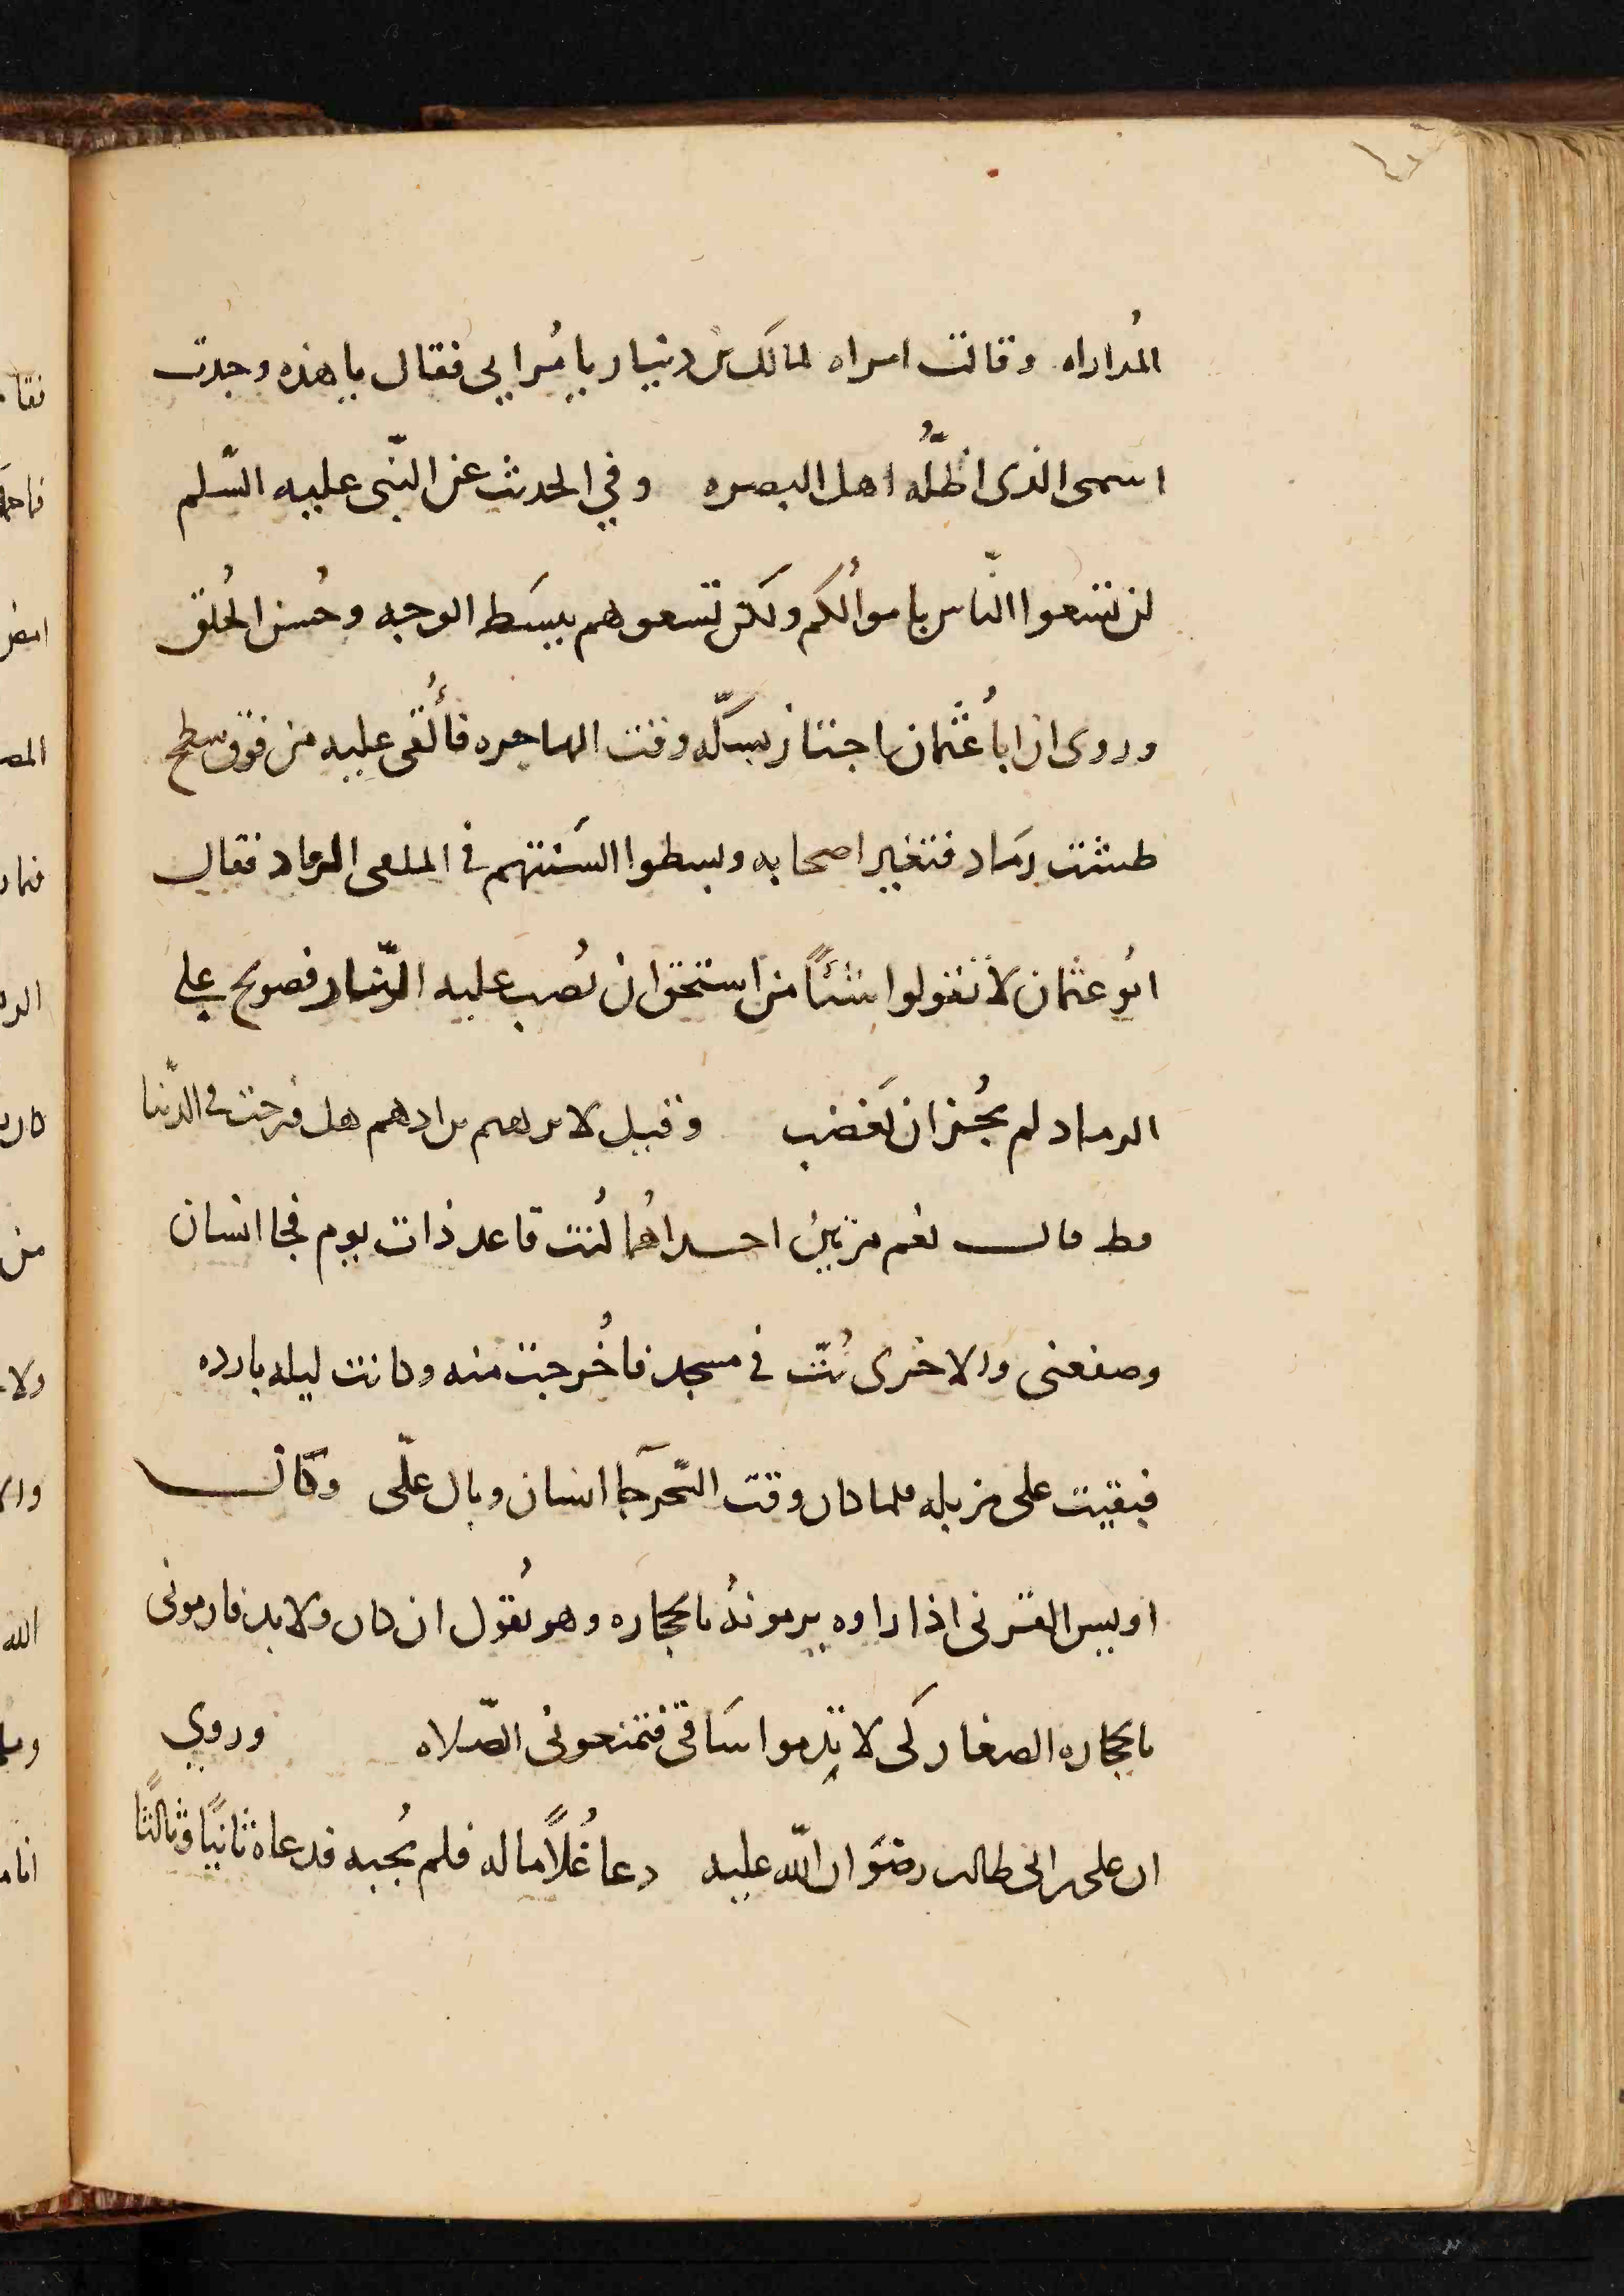 المُداراه وقالت امراه لمالك بن دينار يا مُرايى فقال يا هذه وجدت
اسمى الذى اظلَّه اهل البصره وفي الحديث عن النّبى عليه السّلم
لن تسعوا النّاس باموالكم ولكن تسعوهم ببسَط الوجه وحُسن الخُلق
وروى ان ابا عُثمان اجتاز بسكّه وقت الهاجره فأُلقى عليه من فوق سطح
طشت رمَاد فتغير اصحابه وبسطوا السَنتهم فى الملقى الرماد فقال
ابُو عثمان لا تقولوا شئًا من استحق ان يُصب عليه النّار فصولح على
الرماد لم يجُز ان يَغضب وقيل لابرهيم بن ادهم هل فرحت فى الدّنيا
قط قال نعم مرتين احداهُما كُنت قاعد ذات يوم فجا انسان
وصفعنى والاخرى كُنت فى مسجد فاُخرجت منه وكانت ليله بارده
فبقيت على مزبله فلما كان وقت السّحر جآ انسان وبال علّى وكان
اويس القرنى اذا راوه يرمونهُ بالحجاره وهو يُقول ان كان ولا بد فارمونى
بالحجاره الصغار كى لا تدموا سَاقى فتمنعونى الصّلاه وروي
ان على بن ابى طالب رضوَان اللّه عليه دعا غُلامًا له فلم يُجبه فدعاه ثانيًا وثالثًا